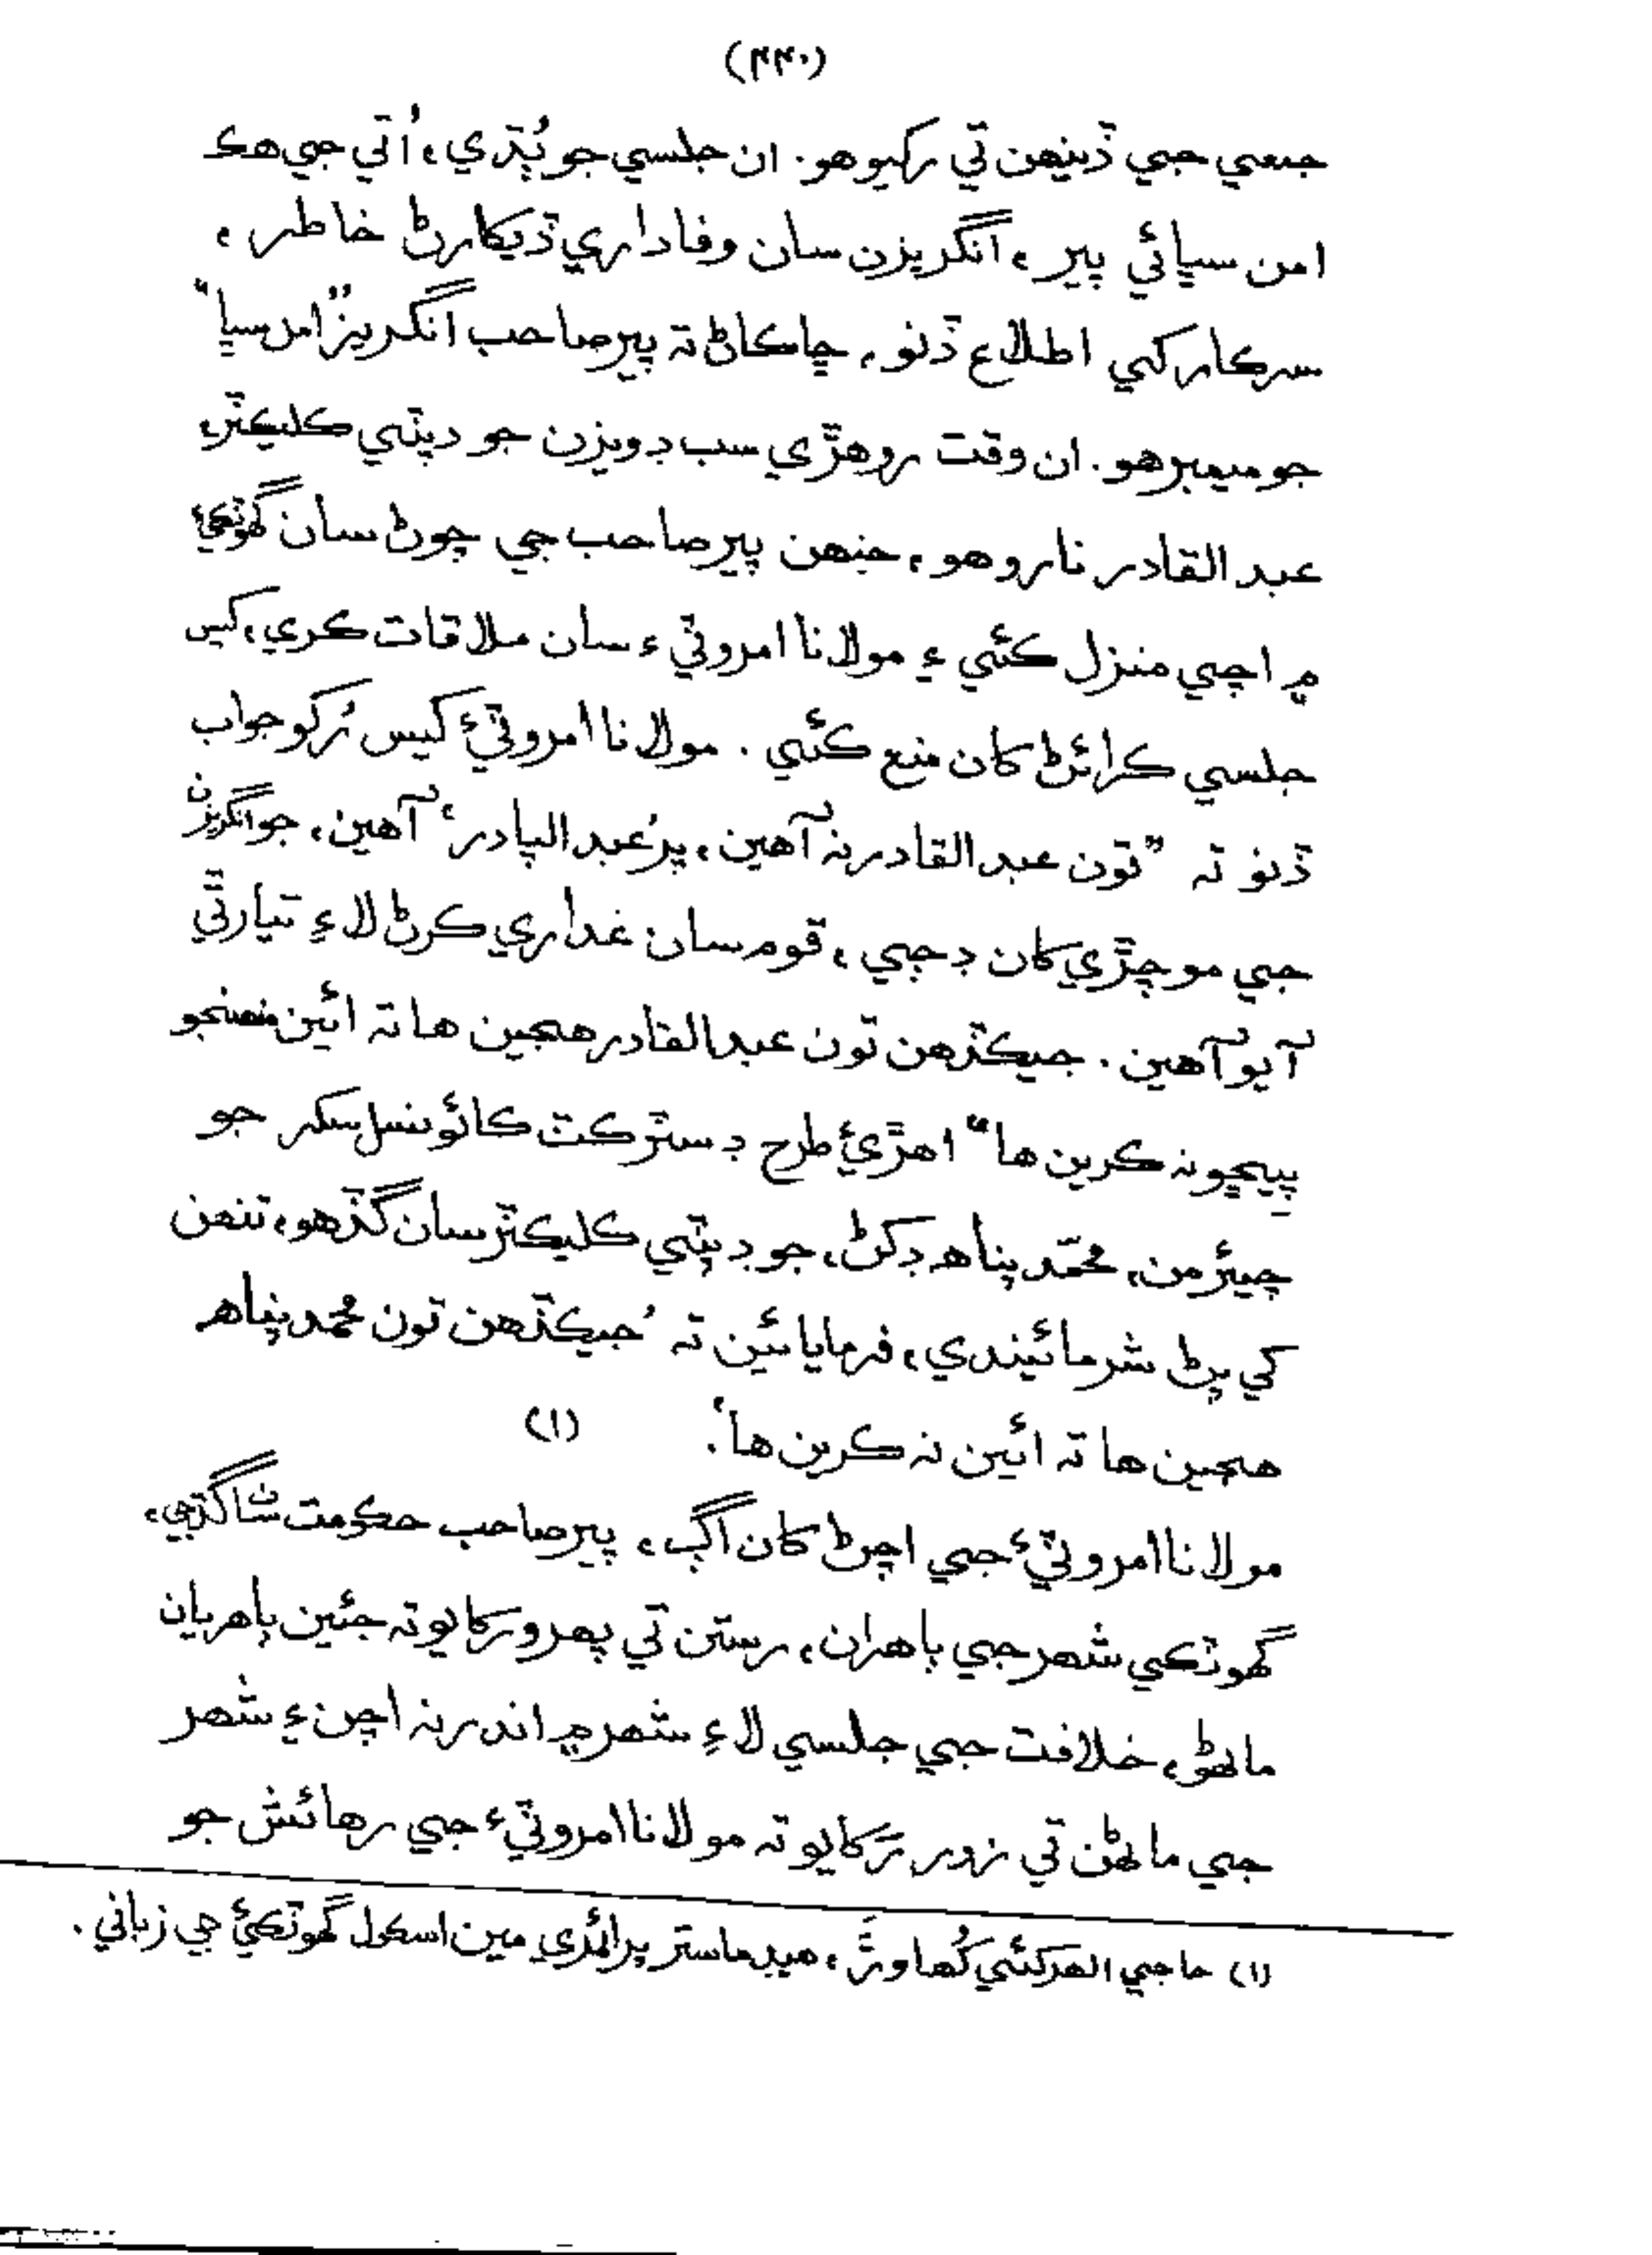 (۴۴۰)
جمعي جي ڏينهن تي رکيو هو. ان جلسي جو ٻڌي، اُتي جي هڪ
امن سڀائي پير، انگريزن سان وفاداري ڏيکارڻ خاطر،
سرڪار کي اطلاع ڏنو، ڇاڪاڻ ته پير صاحب انگريز ”امن سڀا“
جو ميمبر هو. ان وقت روهڙي سب ڊويزن جو ڊپٽي ڪليڪٽر،
عبدالقادر نارو هو، جنهن پير صاحب جي چوڻ سان گهوٽڪيءَ
۾ اچي منزل ڪئي ۽ مولانا امروٽيءَ سان ملاقات ڪري، کيس
جلسي ڪرائڻ کان منع ڪئي. مولانا امروٽيءَ کيس رُکو جواب
ڏنو ته ”تون عبدالقادر نه آهين، پر ’عبدالپادر‘ آهين، جو انگريزن
جي موچڙي کان ڊڄي، قوم سان غداري ڪرڻ لاءِ تيار ٿي
آيو آهين. جيڪڏهن تون عبدالقادر هجين ها ته ائين منهنجو
پيڇو نه ڪرين ها“ اهڙيءَ طرح ڊسٽرڪٽ ڪائونسل سکر جو
چيئرمن، محمّد پناهه ڊکڻ، جو ڊپٽي ڪليڪٽر سان گڏ هو، تنهن
کي پڻ شرمائيندي، فرمايائين ته ’جيڪڏهن تون محمد پناهه
هجين ها ته ائين نه ڪرين ها‘. (۱)
مولانا امروٽيءَ جي اچڻ کان اڳ، پير صاحب حڪومت سان گڏجي،
گهوٽڪي شهر جي ٻاهران، رستن تي پهرو رکايو ته جئين ٻاهريان
ماڻهو، خلافت جي جلسي لاءِ شهر ۾ اندر نه اچن ۽ شهر
جي ماڻهن تي زور رکايو ته مولانا امروٽيءَ جي رهائش جو
(۱) حاجي الهرکئي کُهاوڙَ، هيڊ ماستر پرائمري مين اسڪول گهوٽڪيءَ جي زباني.